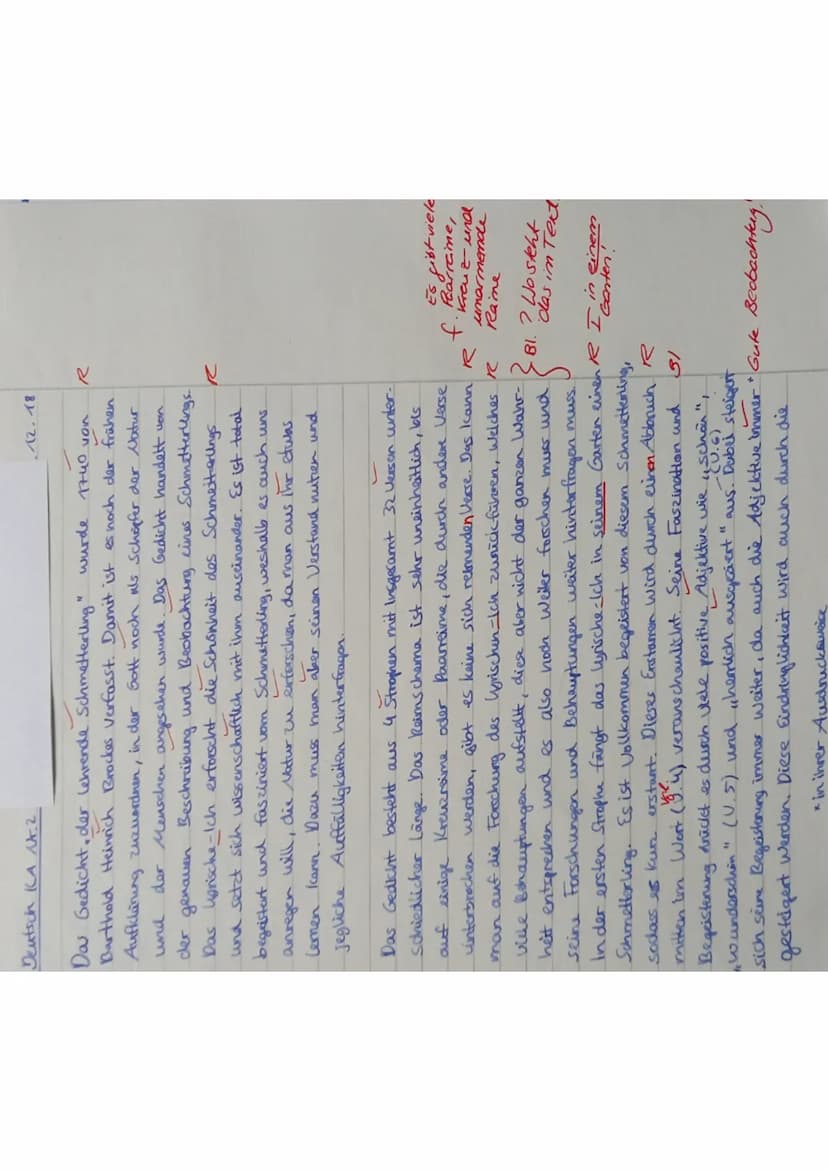 Deutsch KA Nr. 2 .12.18
Das Gedicht „der lehrende Schmetterling" wurde 1740 von R
Barthold Heinrich Brockes verfasst. Damit ist es noch der frühen
Aufklärung zuzuordnen, in der Gott noch als Schöpfer der Natur
und der Menschen angesehen wurde. Das Gedicht handelt von
der genauen Beschreibung und Beobachtung eines Schmetterlings.
Das lyrische-Ich erforscht die Schönheit des Schmetterlings R
und setzt sich wissenschaftlich mit ihm auseinander. Es ist total
begeistert und fasziniert vom Schmetterling, weshalb es auch uns
anregen will, die Natur zu erforschen, da man aus ihr etwas
lernen kann. Dazu muss man aber seinen Verstand nutzen und
jegliche Auffälligkeiten hinterfragen.
Das Gedicht besteht aus 4 Strophen mit insgesamt 32 Versen unter-
schiedlicher Länge. Das Reimschema ist sehr uneinheitlich, bis
auf einige Kreuzreime oder Paarreime, die durch andere Verse
unterbrochen werden, gibt es keine sich reimenden Verse. Das kann R
man auf die Forschung des lyrischen-Ich zurückführen, welches R
viele Behauptungen aufstellt, diese aber nicht der ganzen Wahr-
heit entsprechen und es also noch weiter forschen muss und
seine Forschungen und Behauptungen weiter hinterfragen muss.
In der ersten Strophe fängt das lyrische-Ich in seinem Garten einen R
Schmetterling. Es ist vollkommen begeistert von diesem Schmetterling,
sodass es kurz erstarrt. Dieses Erstarren wird durch einen Abbruch R
mitten im Wort (vgl. V. 4) veranschaulicht. Seine Faszination und Bl
Begeisterung drückt es durch viele positive Adjektive wie „schön",
„wunderschön" (V. 5) und „herrlich ausgeziert" (V. 6) aus. Dabei steigert
sich seine Begeisterung immer weiter, da auch die Adjektive immer *
gesteigert werden. Diese Eindringlichkeit wird auch durch die
* in ihrer Ausdrucksweise
f. Es gibt viele
Paarreime,
Kreuz- und
umarmende
Reime
Bl. ? Wo steht
das im Text
I in einem
Garten!
Gute Beobachtung!